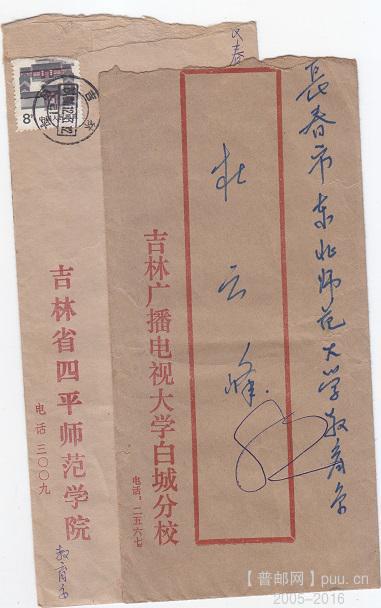 长春市东北师范大学教育系
杜云峰
吉林广播电视大学白城分校
电话:二五六七
吉林省四平师范学院
电话 三〇〇九
教育系
长春
吉林
8
【普邮网】puu.cn
2005-2016